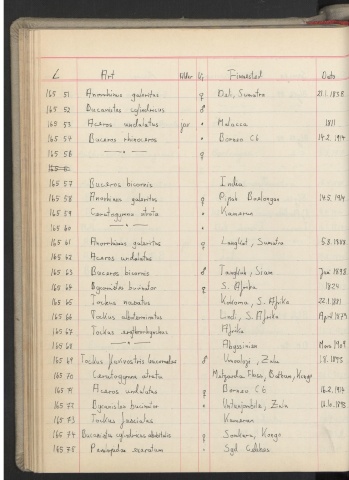 L Art Alder Kj Finnested Dato
165 51 Anorrhinus galeritus ♀ Deli, Sumatra
165 52 Bucanistes cylindricus ♂
165 53 Aceros undulatus juv " Malacca 1811
165 54 Buceros rhinoceros " Borneo CE 14.2. 1914
165 56 —"— ♀
165 57 Buceros bicornis India
165 58 Anorhinus galeritus ♀ Pipoh 14.5. 1914
165 59 Ceratogymna atrata " Kamerun
165 60 —"— "
165 61 Anorrhinus galeritus ♀ Langkat, Sumatra 5.3. 1888
165 62 Aceros undulatus
165 63 Buceros bicornis ♂ Siam Jan 1898
165 64 Bycanistes bucinator ♀ S. Afrika 1824
165 65 Tockus nasutus S. Afrika 22.1. 1881
165 66 Tockus alboterminatus S. Afrika April 1879
165 67 Tockus erythrorhynchus Afrika
165 68 —"— Abyssinien
165 69 Tockus flavirostris leucomelas ♂ Zulu
165 70 Ceratogymna atrata Kongo
165 71 Aceros undulatus ♀ Borneo CE 16.2. 1914
165 72 Bycanistes bucinator " Zulu
165 73 Tockus fasciatus Kamerun
165 74 Bucanistes cylindricus albotibialis ♀ Sankuru, Kongo
165 75 Penelopides exaratum " Syd Celebes